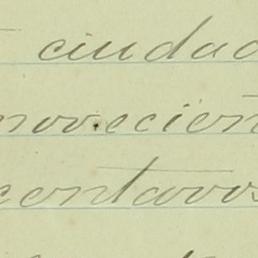 ciudad
novecien
centavos